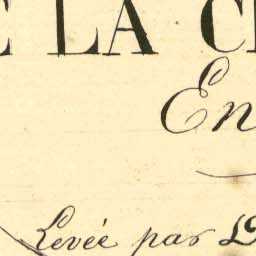 E LA C
En
Levée par L